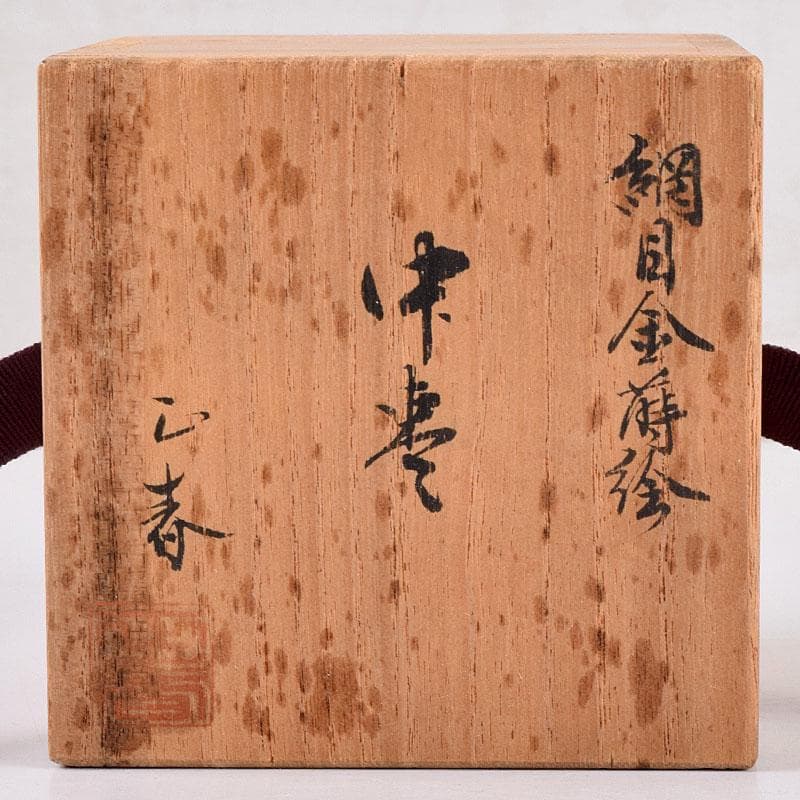 網目金蒔絵
中棗
正春